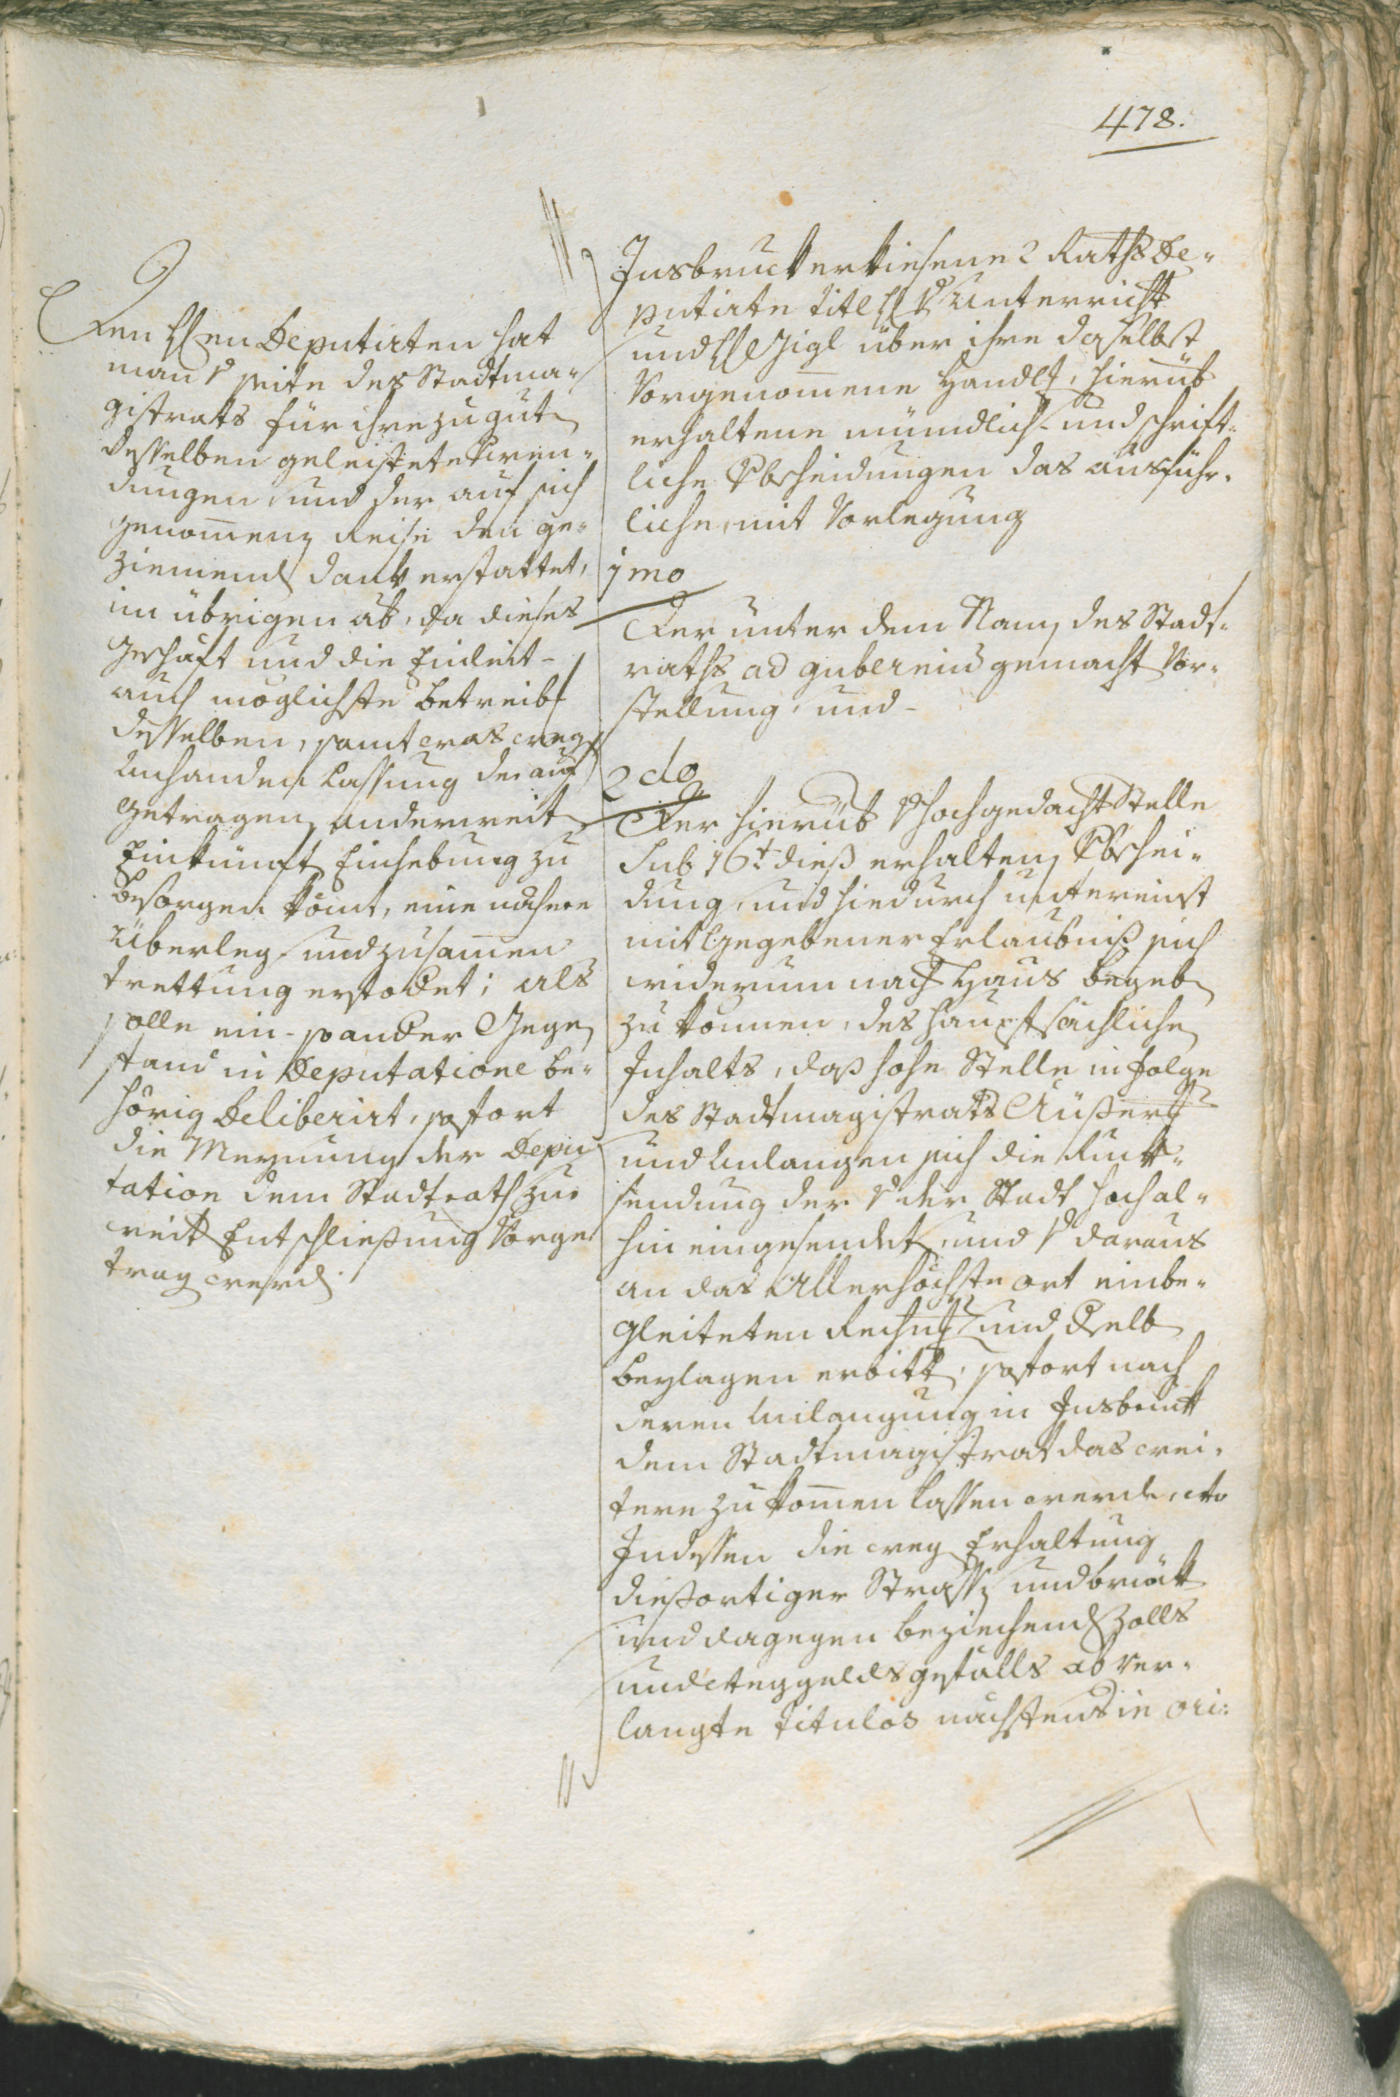 478.
Den HHen Deputirten hat
man von seite des Stadtma-
gistrats für ihre zu guten
desselben geleistete Verwen-
dungen, und der auf sich
genommenen Reise den ge-
ziemend dank erstattet,
im übrigen ab, da dieses
Geschäft und die Einleit-
auch möglichste Betreib
desselben, samt was wegen
Anhanden Lassung der auf
getragenen anderweit
Einkünften Einhebung zu
besorgen kömt, eine nähere
Überleg- und zusammen
trettung erfodert; als
solle ein- so ander Gegen
stand in Deputatione be-
hörig Deliberirt, sofort
die Meynung der Depu
tation dem Stadtrath zur
weit Entschließung Vorge
trag werd.
Insbruck erkiesene 2 Raths De-
putirte titl HH v Unterricht
und HH Gigl über ihre daselbst
Vorgenommene Handlg, hierüb
erhaltene mündlich- und schrift-
liche Bscheidungen das ausführ-
liche, mit Vorlegung
1mo
Der unter dem Namen des Stadt-
raths ad gubernium gemacht Vor-
stellung, und-
2do
Der hierüb von hochgedacht Stelle
sub 16t dieß erhaltenen Bschei-
dung, und hiedurch untereinst
mitgegebener Erlaubniß sich
widerum nach Haus begeben
zu können, des hauptsächlichen
Inhalts, daß hohe Stelle in folge
des Stadtmagistrats Äußerg
und Anlangen sich die Ruck-
sendung der von der Stadt hochal-
hin eingesendet, und von daraus
an das Allerhöchste ort einbe-
gleiteten Rechng und dselb
beylagen erbitt, sofort nach
deren Anlangung in Insbruck
dem Stadtmagistrat das wei-
tere zu kommen lassen werde, wo
Indessen die weg Erhaltung
dießortiger Strassen und bruck
und dagegen beziehend Zolls
und Weggelds gefälls ab ver-
langte titulos nächstens in Ori-